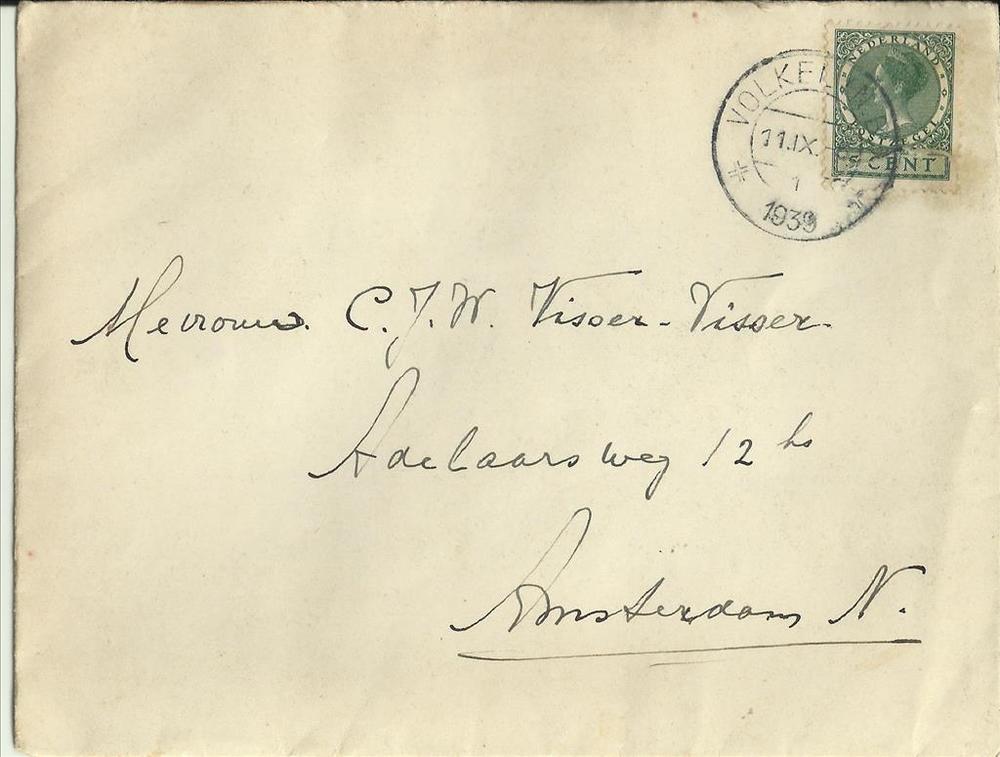 NEDERLAND
POSTZEGEL
5 CENT
VOLKEL
11.IX.
1
1939
Mevrouw. C. J. W. Visser-Visser.
Adelaarsweg 12 hs
Amsterdam N.